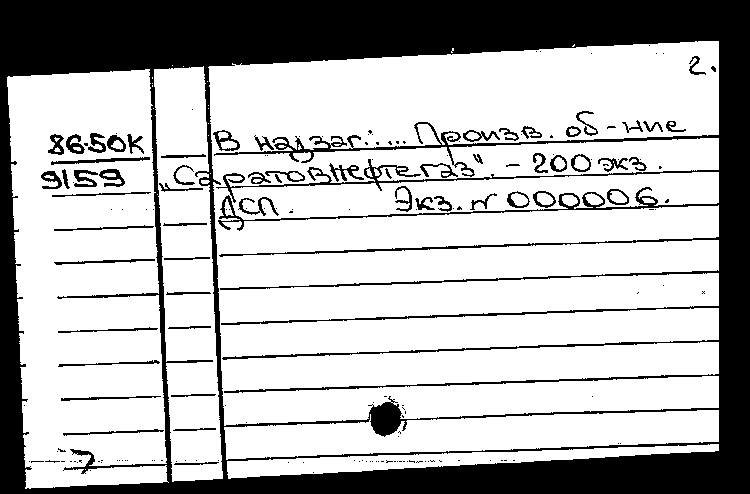 2.
86-50К
В надзаг.:... Произв. об-ние
9159
„Саратовнефтегаз". - 200 экз.
ДСП. Экз. № 000006.